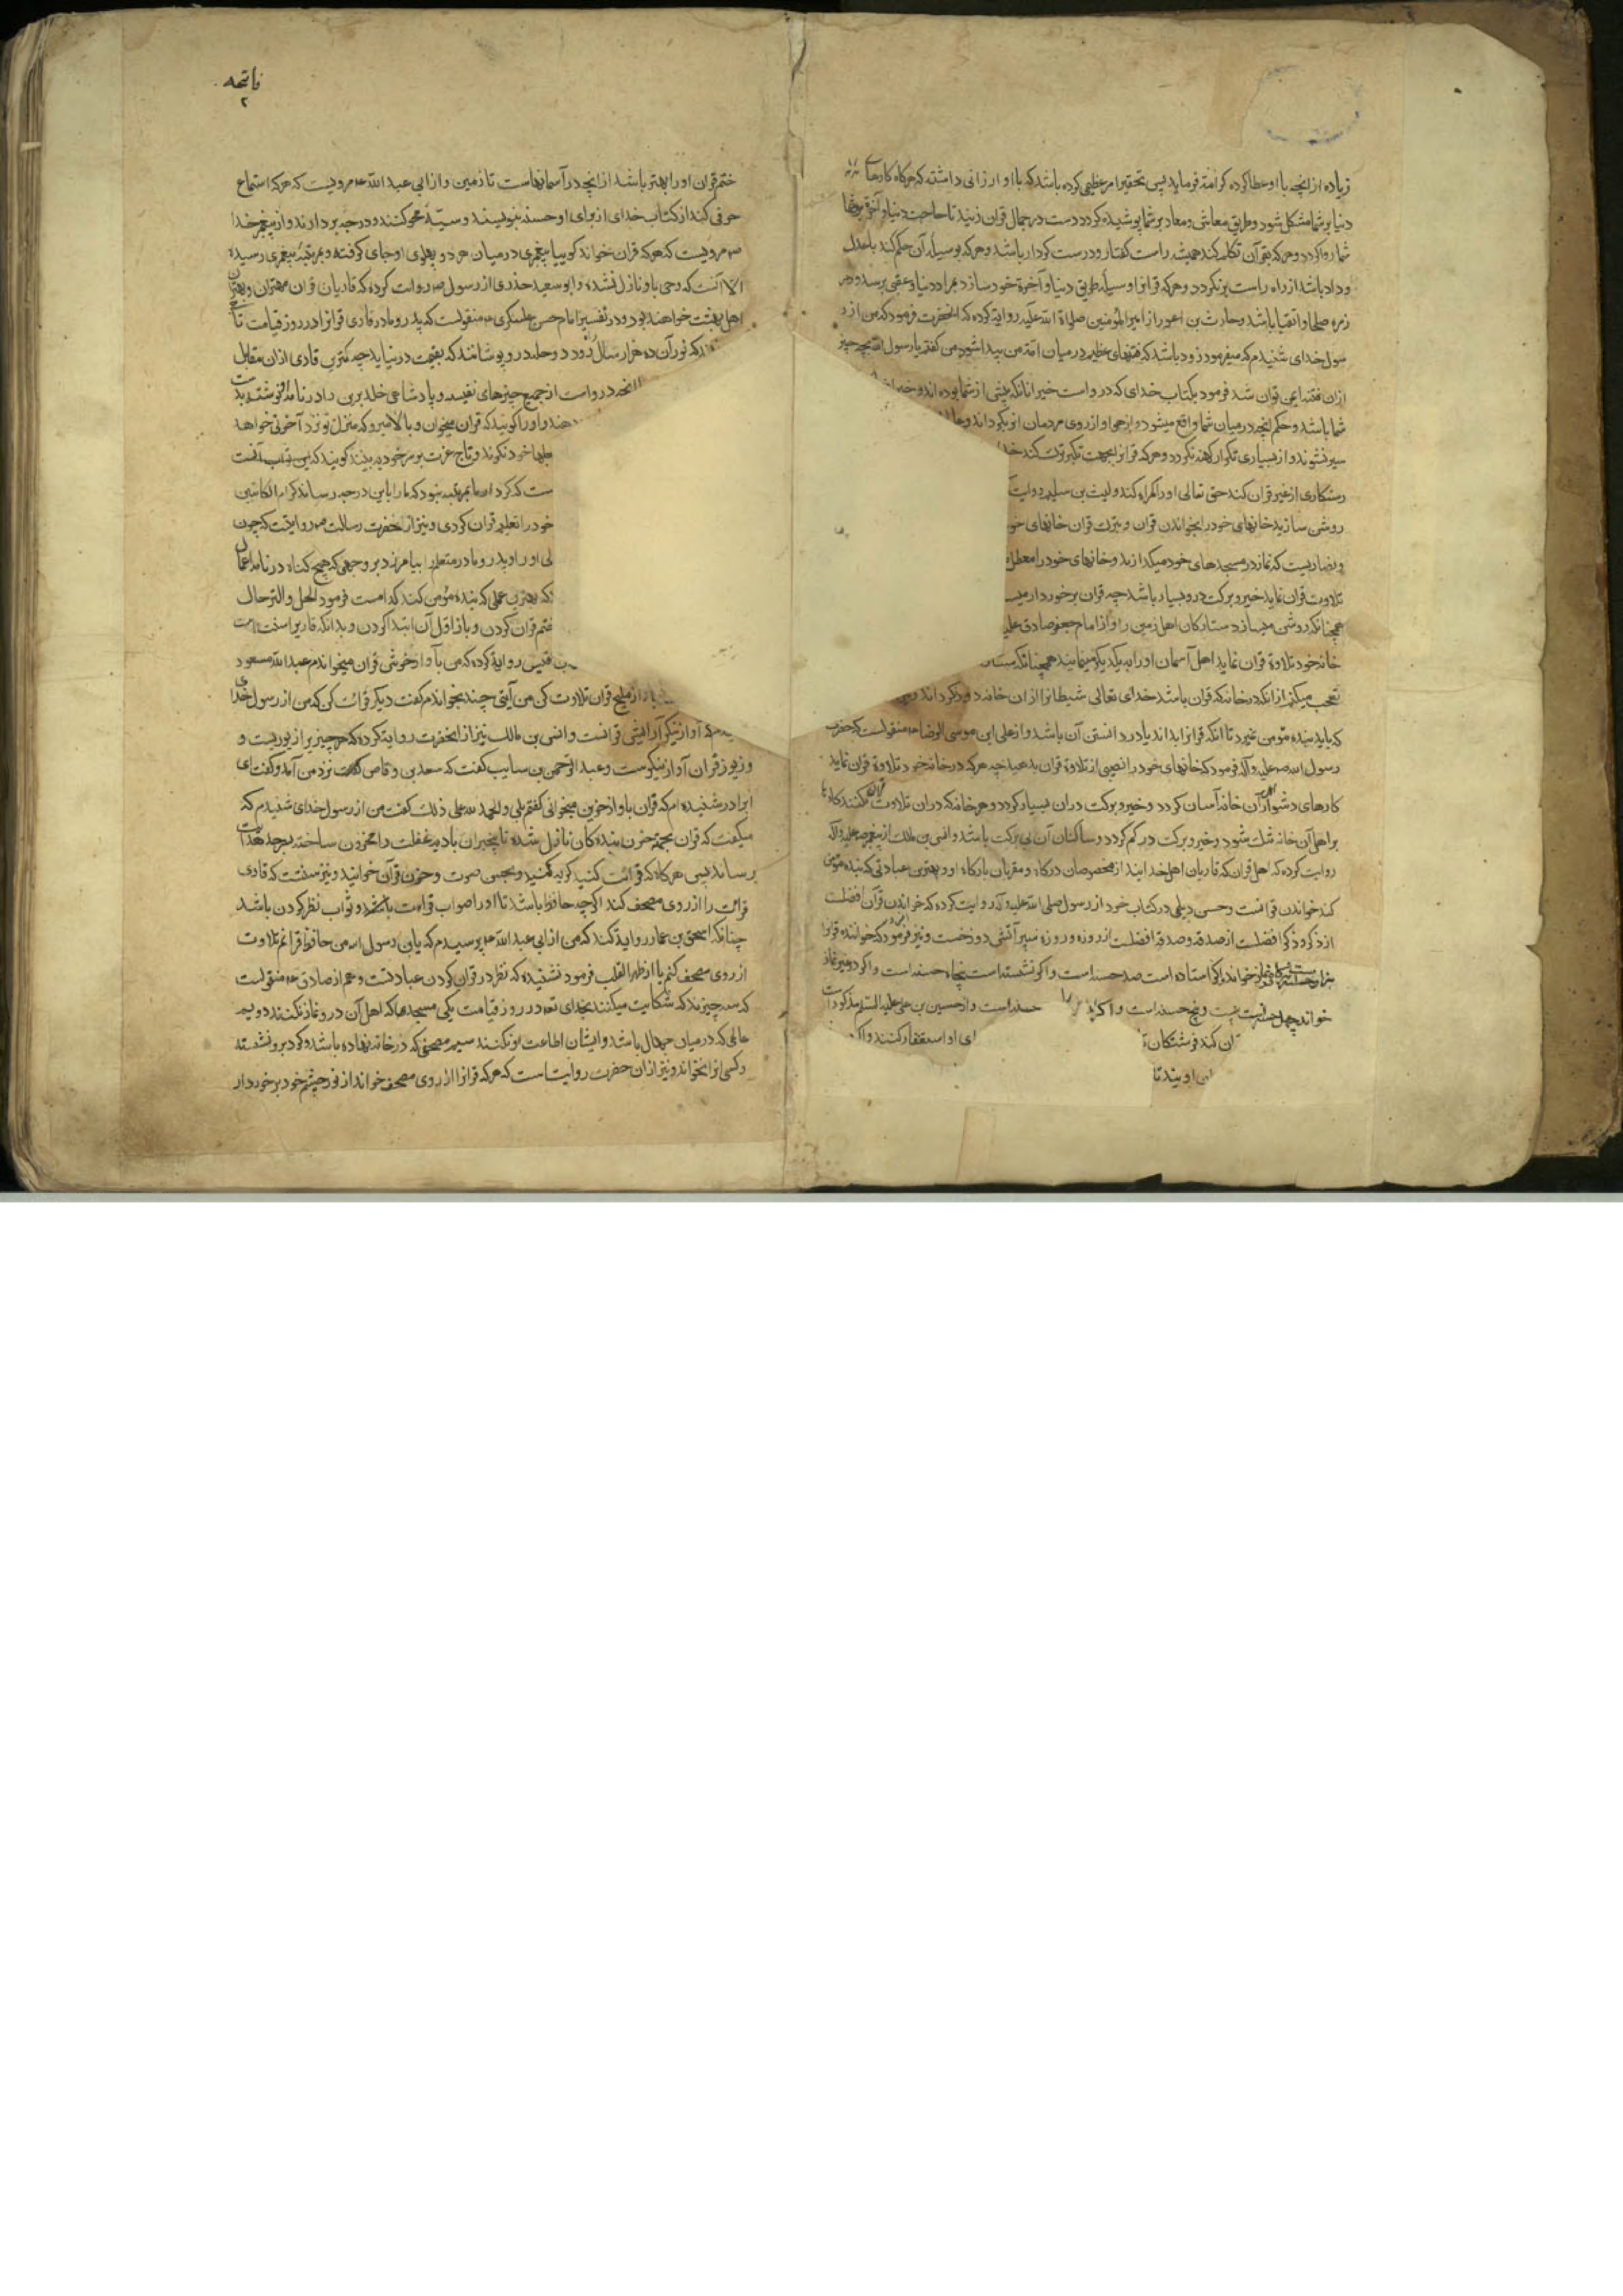 زیاده از انچه باو عطا کرده کرامت فرماید پس تحقیر امر عظیمی کرده باشد که باو ارزانی داشته که هرکاه کارهای
دنیا بر شما مشکل شود و طریق معاش و معاد بر شما پوشیده کردد دست در حبال قران زنید تا حاجت دنیا و آخرة
شما روا کردد و هر که بقرآن تکلم کند همیشه راست کفتار و درست کردار باشد و هر که بوسیله آن حکم کند با عدل
و داد باشد از راه راست برنکردد و هر که قرانرا وسیله طریق دنیا و آخرة خود سازد بمراد دنیا و عقبی برسد و در
زمره صلحا و اتقیا باشد و حارث بن اعور از امیر المؤمنین صلوات الله علیه روایة کرده که انحضرت فرمود که من از ر
سول خدای شنیدم که میفرمود زود باشد که فتنهای عظیم در میان امت من پیدا شود من کفتم یا رسول الله بچه چیز
ازان فتنه ایمن توان شد فرمود بکتاب خدای که درو است خبر انانکه پیش از شما بوده اند و خبر
شما باشد و حکم انچه در میان شما واقع میشود و از هوا و از روی مردمان
سیر نشوند و از بسیاری تکرار کهنه نکردد و هر که قرانرا بجهت تکبر ترک کند
رستکاری از غیر قران کند حق تعالی اورا کمراه کند و لیث بن سلیم روایت
روشن سازید خانهای خود را بخواندن قران و بترک قران خانهای
و نصاریست که نماز در مسجدهای خود میکذارند و خانهای خود را معطل
تلاوت قران نماید خیر و برکت درو بسیار باشد چه قران برخوردار
همچنانکه روشن میسازد ستارکان اهل زمین را و از امام جعفر صادق
خانه خود تلاوة قران نماید اهل آسمان اورا بیکدیکر مینمایند همچنانکه
تعجب میکنم از انکه در خانه که قران باشد خدای تعالی شیطانرا ازان خانه دور کرداند
که باید بنده مؤمن نمیرد تا انکه قرانرا بداند یا در دانستن آن باشد و از علی ابن موسی الرضا ع منقولست که حضرت
رسول الله صلی علیه و آله فرمود که خانهای خود را نصیبی از تلاوة قران بدهید چه هر که در خانه خود تلاوة قران نماید
کارهای دشوار اهل آن خانه آسان کردد و خیر و برکت دران بسیار کردد و هر خانه که دران تلاوت قران نکنند کارها
بر اهل آن خانه تنک شود و خیر و برکت در کم کردد و ساکنان آن بی برکت باشد و انس بن مالک از پیغمبر صلی علیه و آله
روایت کرده که اهل قران که قاریان اهل خدا ایند از مخصوصان درکاه و مقربان بارکاه او و بهترین عبادتی که بنده مؤمن
کند خواندن قرانست و حسن دیلمی در کتاب خود از رسول صلی الله علیه و آله روایت کرده که خواندن قرآن افضلست
از ذکر و ذکر افضلست از صدقه و صدقه افضلست از روزه و روزه سپر آتش دوزخست و نیز فرمود که خواننده قرانرا
خواند اکر استاده است صد حسنه است و اکر نشسته است پنجاه حسنه است و اکر در غیر نماز
خواند و پنج حسنه است و اکر حسنه است و از حسین بن علی علیه السلم مذکور است
ان کند فرشتکان ای او استغفار کنند و اکر
او بیند تا
فاتحه
۲
ختم قران اورا بهتر باشد از انچه در آسمانهاست تا زمین و از ابی عبد الله ع مرویست که هر که استماع
حرفی کند از کتاب خدای از برای او حسنه بنویسند و سیئه محو کنند و درجه بردارند و از پیغمبر خدا
ص مرویست که هر که قران خواند کوییا پیغمبری در میان هر دو پهلوی او جای کرفته و بمرتبه پیغمبری رسیده
الا آنست که وحی باو نازل نشده و ابو سعید خدری از رسول ص روایت کرده که قاریان قران مهتران و بهتران
اهل بهشت خواهند بود و در تفسیر امام حسن عسکری ع منقولست که پدر و مادر قاری قرانرا در روز قیامت تاج
که نور آن ده هزار سال رود و حله درو پوشانند که بقیمت در نیاید چه کمترین قاری ازان مقابل
انچه درو است از جمیع چیزهای نفیسه و پادشاهی خلد برین را در نامه نوشته بدست
دهند و اورا کویند که قران میخوان و بالا میرو که منزل تو نزد آخرتی خواهد
حلها خود نکرند و تاج عزت بر سر خود بینند کویند که این ثواب
ست که کردار ما بمرتبه نبود که مارا باین درجه رساند کرام الکاتبین
خود را تعلیم قران کردی و نیز از حضرت رسالت ص روایتست که چون
لی اورا و پدر و مادر متعلم را بیامرزد بر وجهی که هیچ کناه در نامه اعمال
که بهترین عملی که بنده مؤمن کند کدامست فرمود الحل و الترحال
ختم قران کردن و باز اول آن ابتدا کردن و بدانکه
قیس روایة کرده که من بآواز خوش قران میخواندم عبد الله مسعود
قران تلاوت کن من آیتی چند بخواندم کفت دیکر قرائت کن که من از رسول خدای
آواز نیکو آرایش قرانست و انس بن مالک نیز از انحضرت روایة کرده که هر چیزیرا زیوریست و
و زیور قران آواز نیکوست و عبد الرحمن بن سایب کفت که سعد بن وقاص نزد من آمد و کفت ای
برادر شنیده ام که قران باواز حزین میخوانی کفتم بلی و الحمد لله علی ذلک کفت من از رسول خدای شنیدم که
میکفت که قران بجهة حزن بندکان نازل شده تا بیخبران بادیه غفلت را محزون ساخته
رساند پس هرکاه که قرائت کنید کریه کنید و بحسن صوت و حزن قرآن خوانید و نیز سنتست که قاری
قرائت را از روی مصحف کند اکرچه حافظ باشد تا اورا صواب قراءت باشد و ثواب نظر کردن باشد
چنانکه اسحق بن عمار روایة کند که من از ابی عبد الله ع پرسیدم که یابن رسول الله من حافظ قرانم تلاوت
از روی مصحف کنم یا از ظهر القلب فرمود نشنیده که نظر در قران کردن عبادتست و هم از صادق ع منقولست
که سه چیزند که شکایت میکنند بخدای تع در روز قیامت یکی مسجدها که اهل آن درو نماز نکنند دویم
عالمی که در میان جهال باشد و ایشان اطاعت او نکنند سیم مصحفی که در خانه نهاده باشد و کرد برو نشسته
و کسی انرا نخواند و نیز ازان حضرت روایت است که هر که قرانرا از روی مصحف خواند از نور چشم خود برخوردار